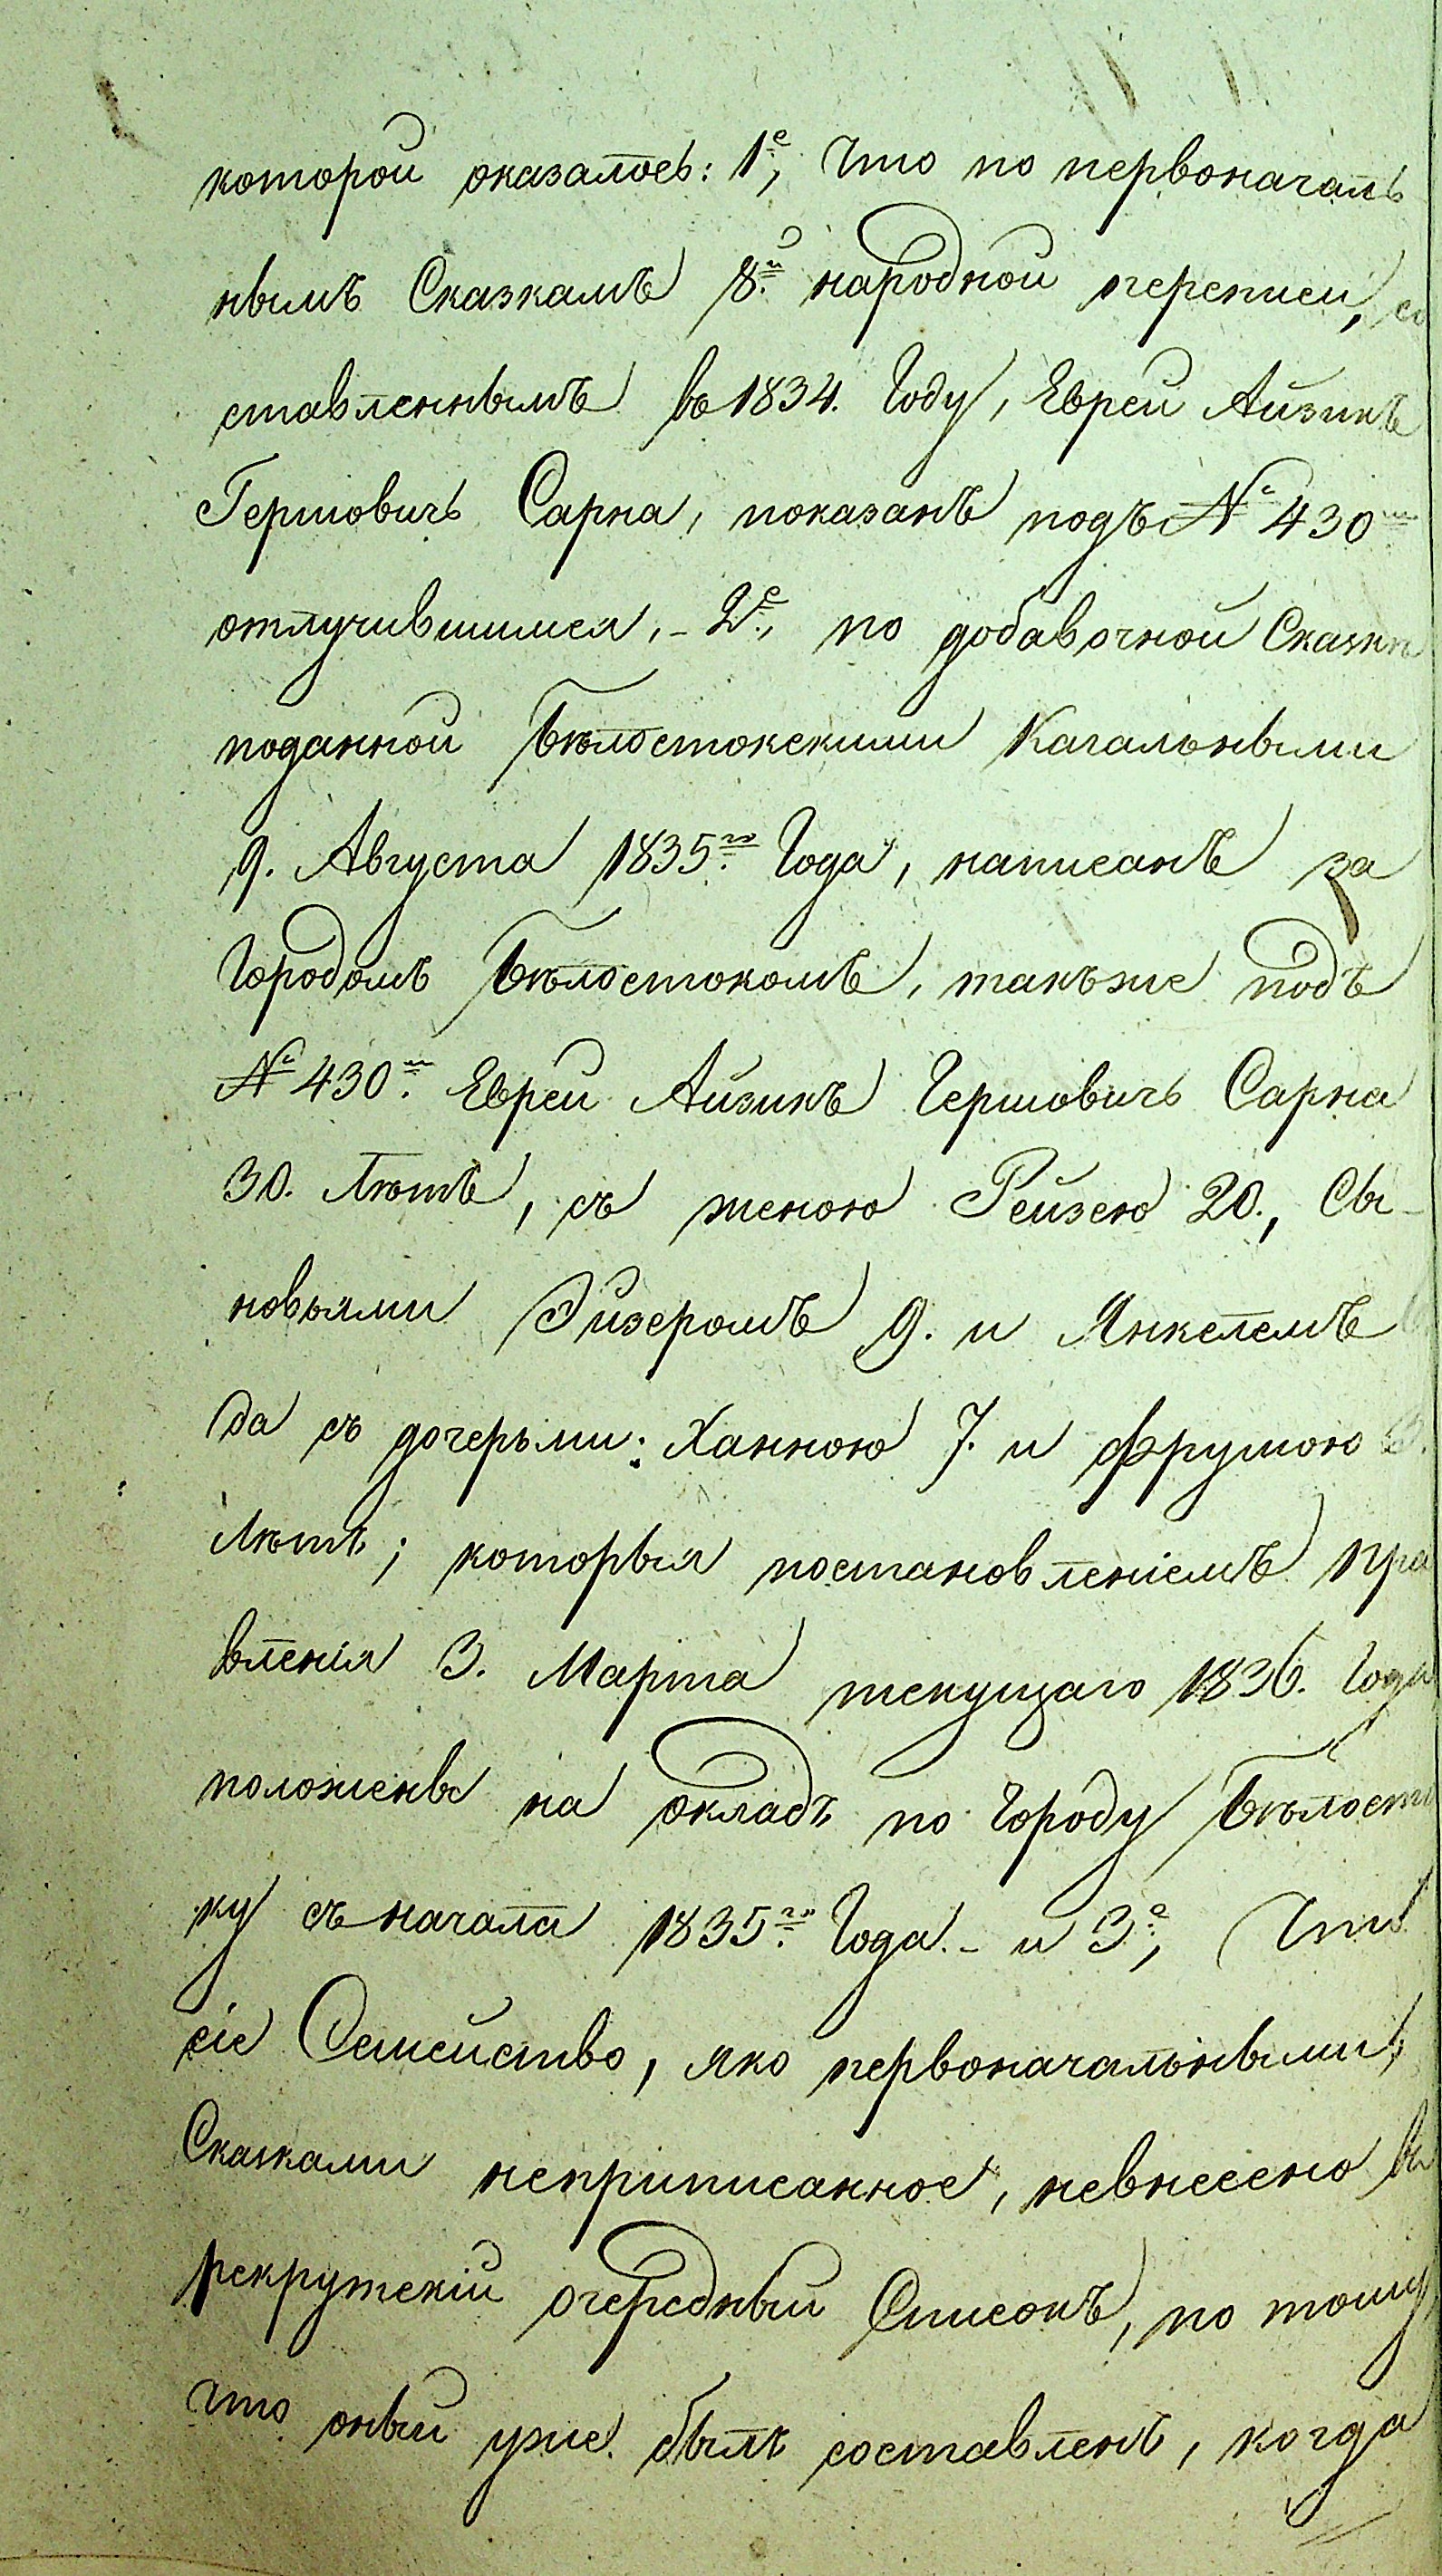 которой оказалось: 1е, Что по первоначаль
нымъ Сказкамъ 8й народной переписи, со
ставленнымъ въ 1834. Году, Еврей Айзикъ
Гершовичъ Сарна, показанъ подъ № 430м
отлучившимся, - 2е, по добавочной Сказкѣ
поданной Бѣлостокскими Кагальными
9. Августа 1835го Года, написанъ за
Городомъ Бѣлостокомъ, такъже подъ
№ 430м. Еврей Айзикъ Гершовичъ Сарна
30. Лѣтъ, съ женою Рейзею 20., Сы-
новьями Эйзеромъ 9. и Янкелемъ
да съ дочерьми: Ханною 7. и Фрумою 3.
Лѣтъ; которыя постановленіемъ пра
вленія 3. Марта текущаго 1836. Года
положены на окладъ по Городу Бѣлосто
ку съ начала 1835го Года. - и 3е, Что
сіе Семейство, яко первоначальными
Сказками неприписанное, невнесено въ
рекрутскій очередный Списокъ, по тому,
что оный уже былъ составленъ, когда